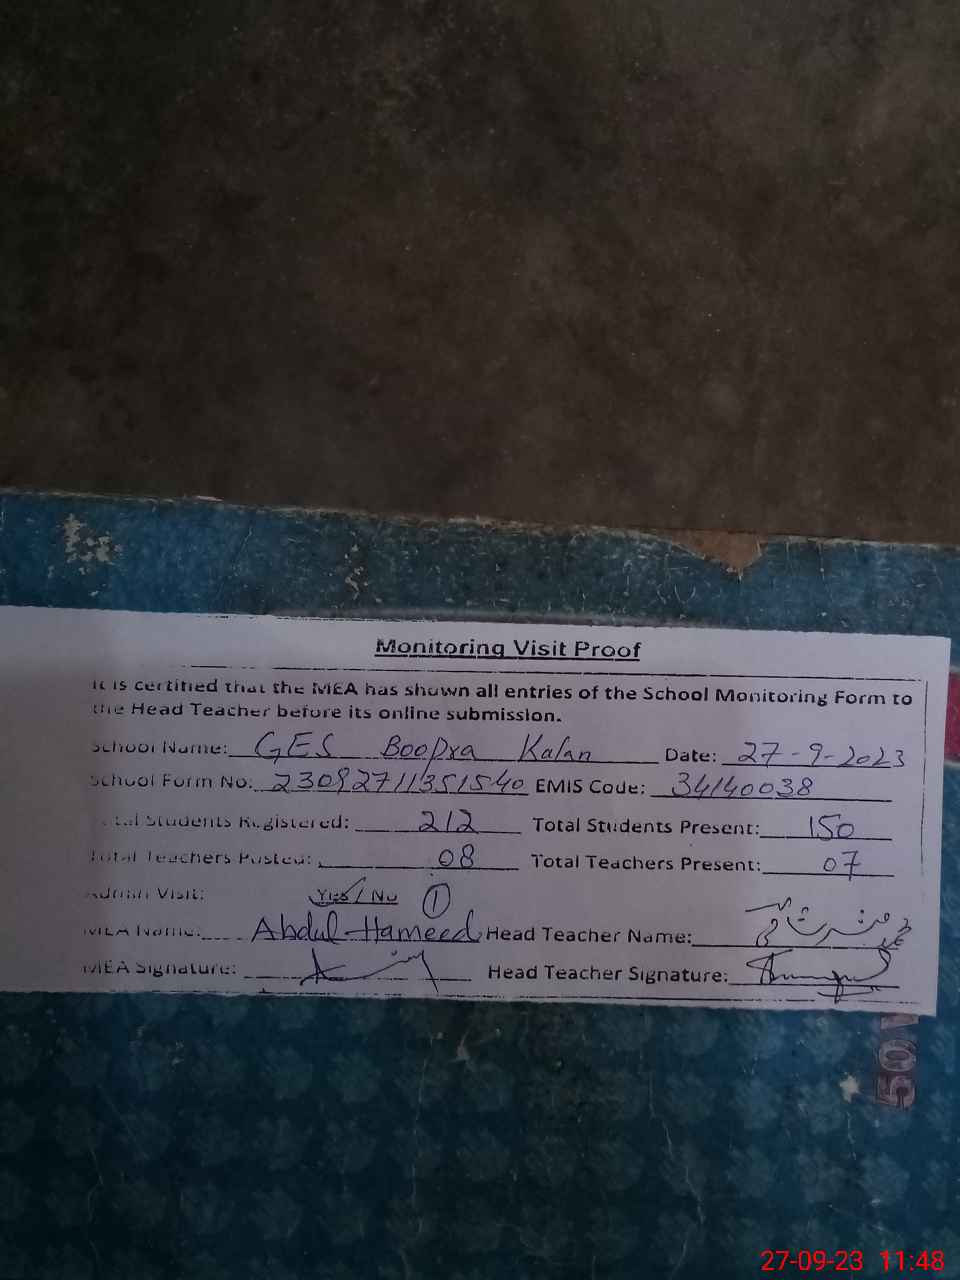 Monitoring Visit Proof
It is certified that the MEA has shown all entries of the School Monitoring Form to
the Head Teacher before its online submission.
School Name: GES Boopra Kalan Date: 27-9-2023
School Form No: 23092711351540 EMIS Code: 34140038
Total Students Registered: 212 Total Students Present: 150
Total Teachers Posted: 08 Total Teachers Present: 07
Admin Visit: Yes / No 1
MEA Name: Abdul Hameed Head Teacher Name:
MEA Signature: Head Teacher Signature:
50
27-09-23 11:48